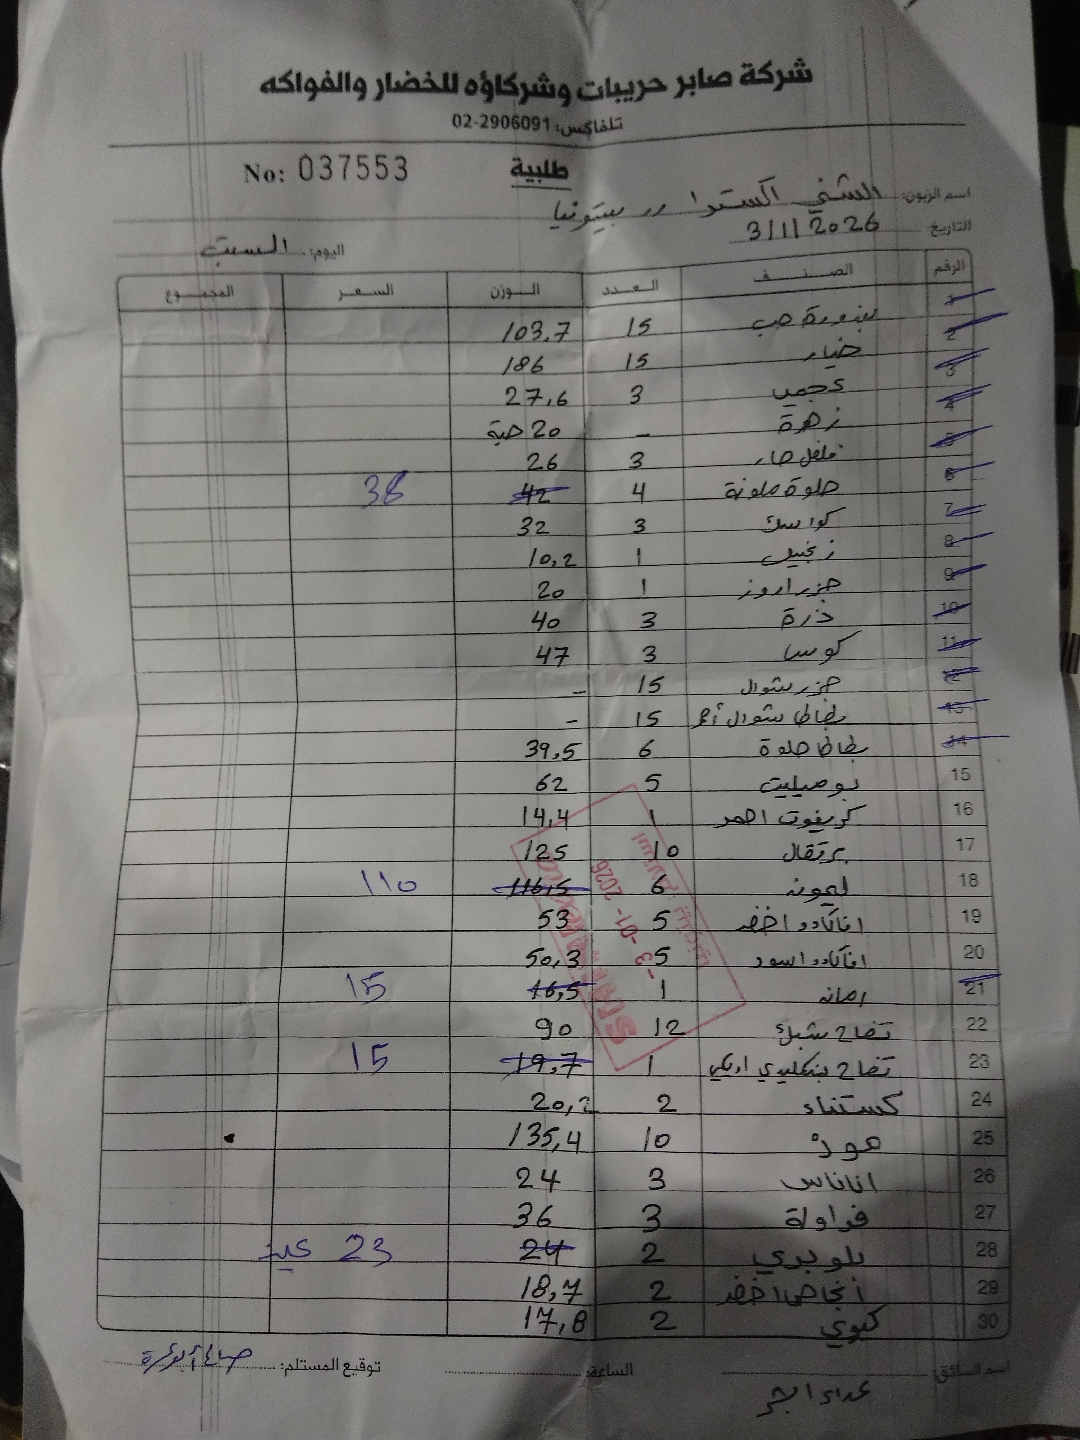 شركة صابر حريبات وشركاؤه للخضار والفواكه
تلفاكس: 02-2906091
No: 037553 طلبية
اسم الزبون: الشني اكسترا بيتونيا
التاريخ: 3/1/2026
اليوم: السبت
الرقم الصنف العدد الوزن السعر المجموع
1 بندورة حب 15 103,7
2 خيار 15 186
3 عجمي 3 27,6
4 زهرة - 20 حبة
5 فلفل حار 3 26
6 حلوة ملونة 4 42 38
7 3 32
8 زنجبيل 1 10,2
9 جزر 1 20
10 ذرة 3 40
11 كوسا 3 47
12 جزر شوال 15 -
13 بطاطا شوال 15 -
14 بطاطا حلوة 6 39,5
15 بوميليت 5 62
16 كريفوت احمر 1 14,4
17 برتقال 10 125
18 ليمونه 6 116,5 110
19 افاكادو اخضر 5 53
20 افاكادو اسود 5 50,3
21 رمانه 1 16,5 15
22 تفاح 12 90
23 تفاح 1 19,7 15
24 كستناء 2 20,2
25 موز 10 135,4
26 اناناس 3 24
27 فراولة 3 36
28 بلوبري 2 24 23
29 انجاص اخضر 2 18,7
30 كيوي 2 17,8
-3 -01- 2026
اسم السائق: الساعة: توقيع المستلم: